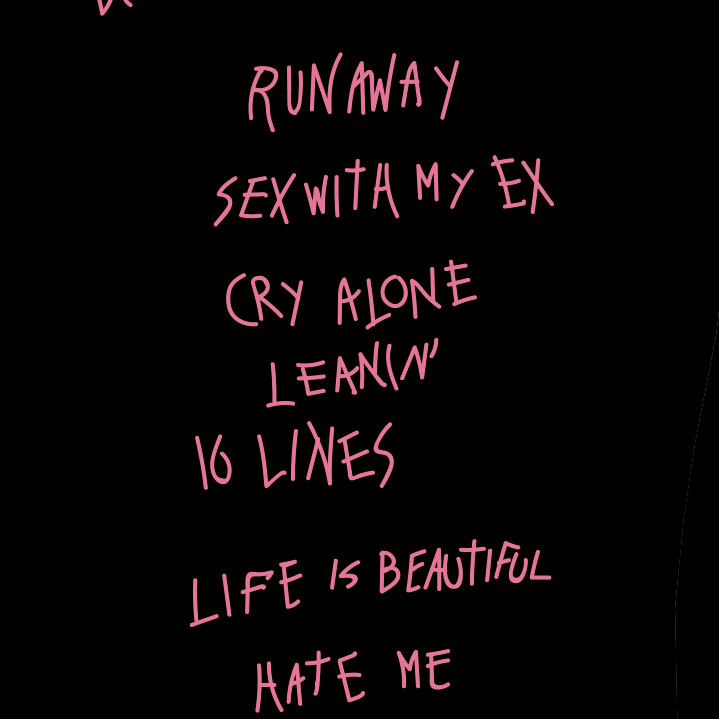 RUNAWAY
SEX WITH MY EX
CRY ALONE
LEANIN'
16 LINES
LIFE IS BEAUTIFUL
HATE ME